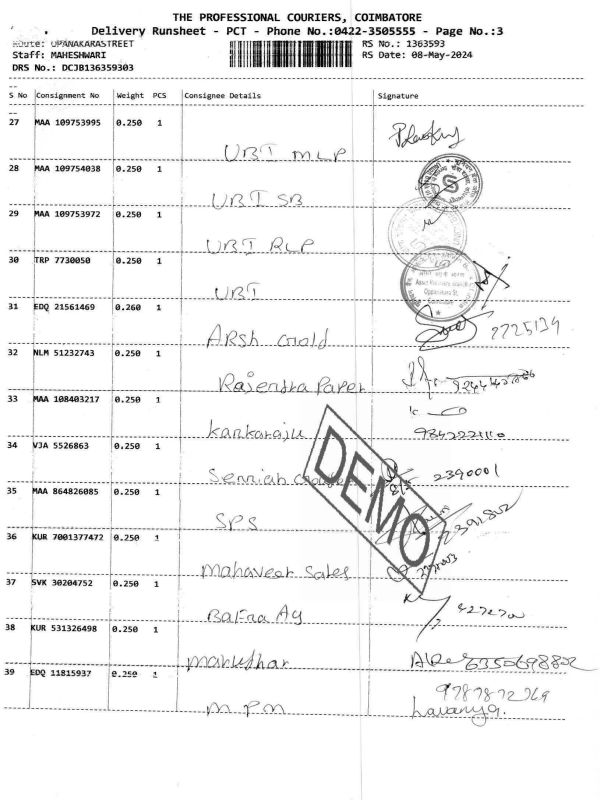 THE PROFESSIONAL COURIERS, COIMBATORE
Delivery Runsheet - PCT - Phone No.:0422-3505555 - Page No.:3
Route: UPANAKARASTREET
RS No.: 1363593
Staff: MAHESHWARI
RS Date: 08-May-2024
DRS No.: DCJB136359303
--
S No Consignment No Weight PCS Consignee Details Signature
--
27 MAA 109753995 0.250 1
UBI MLP
28 MAA 109754038 0.250 1
UBI SB
29 MAA 109753972 0.250 1
UBI RLP
30 TRP 7730050 0.250 1
UBI
31 EDQ 21561469 0.260 1
ARSh Gold 2725134
32 NLM 51232743 0.250 1
Rajendra Paper
33 MAA 108403217 0.250 1
Kankaraju 9842221110
34 VJA 5526863 0.250 1
Senniah 2390001
35 MAA 864826085 0.250 1
SPS
36 KUR 7001377472 0.250 1
Mahaveer Sales
37 SVK 30204752 0.250 1
Balraa Ag
38 KUR 531326498 0.250 1
Marudhar
39 EDQ 11815937 0.250 1
9787872769
MPM Lavanya.
DEMO